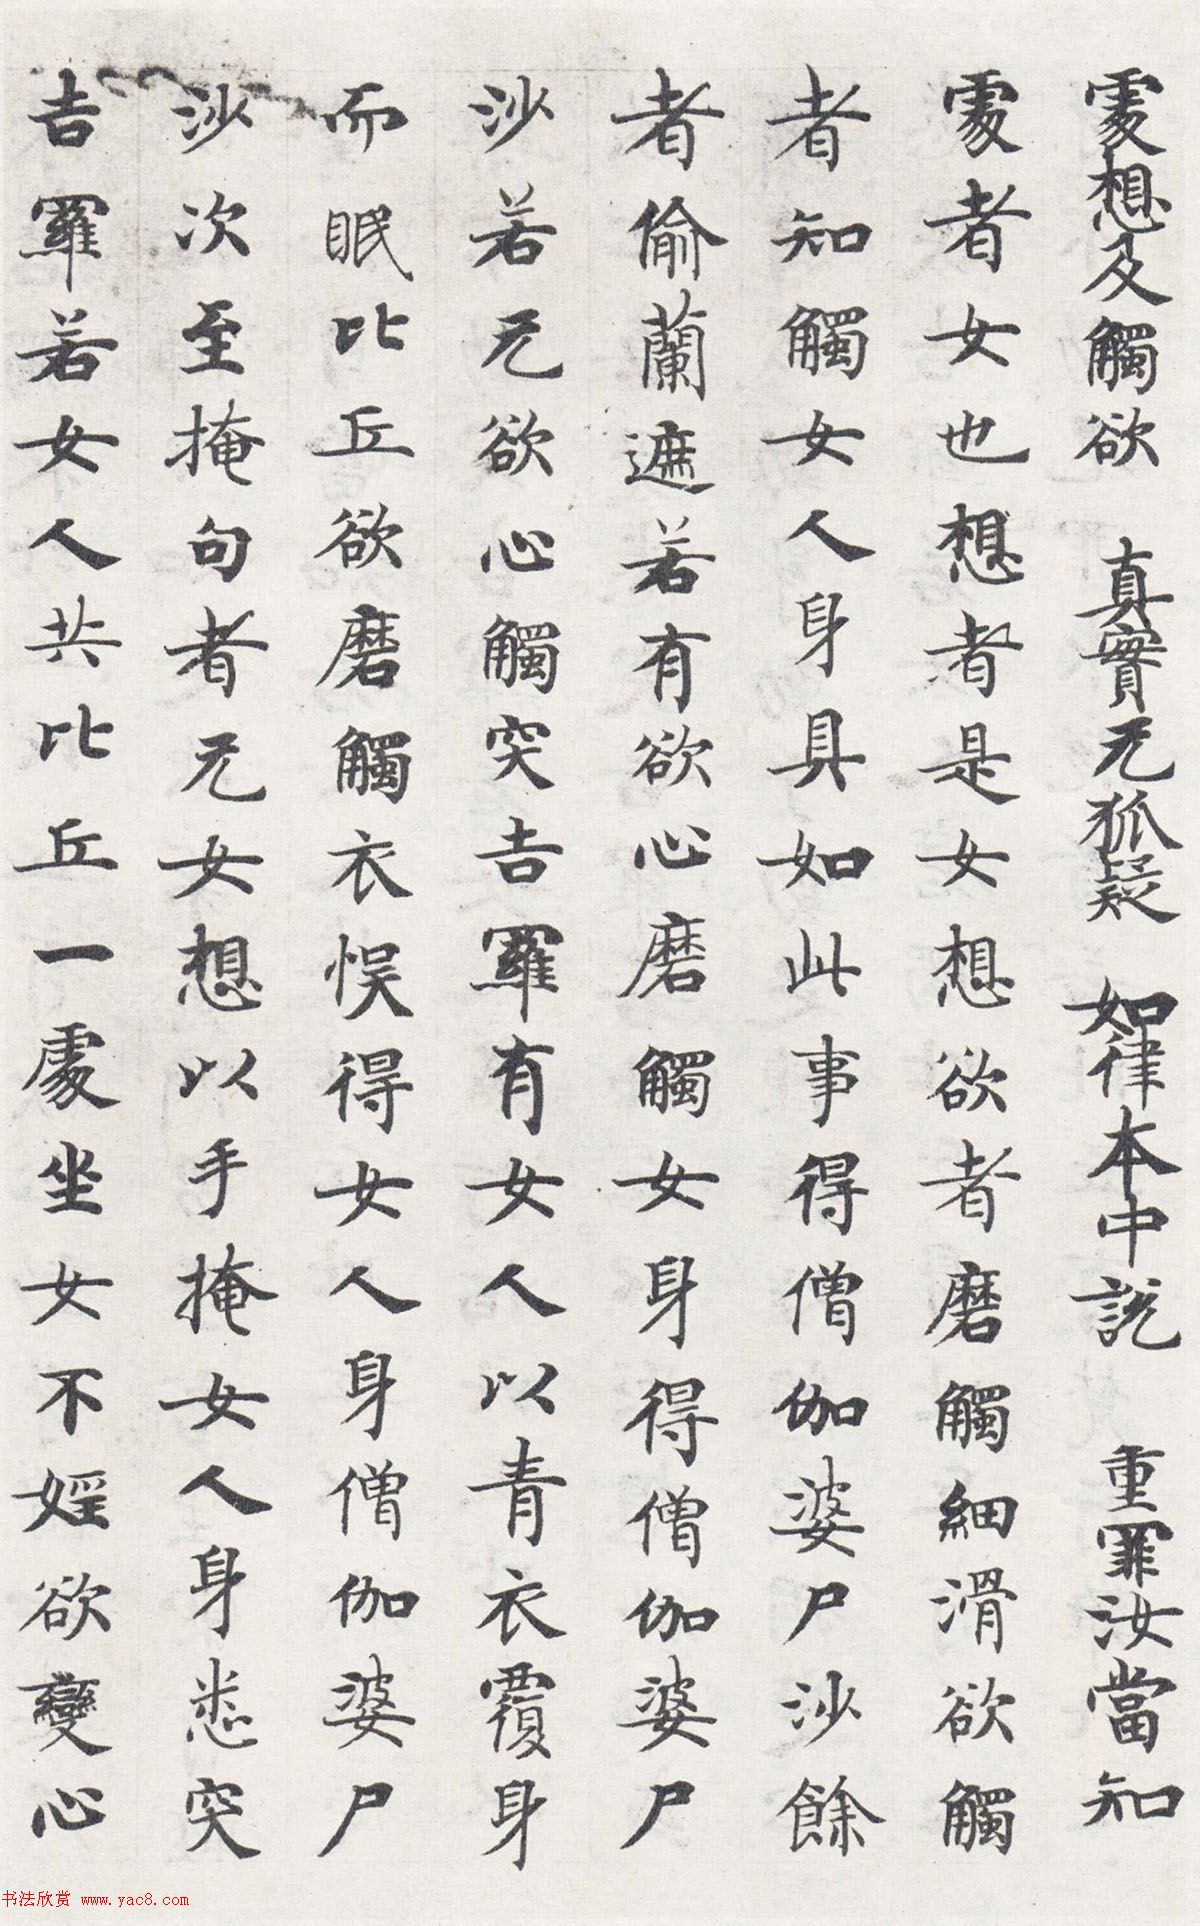 處想及觸欲　真實无狐疑　如律本中説　重罪汝當知
處者女也想者是女想欲者磨觸細滑欲觸
者知觸女人身具如此事得僧伽婆尸沙餘
者偷蘭遮若有欲心磨觸女身得僧伽婆尸
沙若无欲心觸突吉羅有女人以青衣覆身
而眠比丘欲磨觸衣悮得女人身僧伽婆尸
沙次至掩句者无女想以手掩女人身悉突
吉羅若女人共比丘一處坐女不婬欲變心
书法欣赏 www.yac8.com